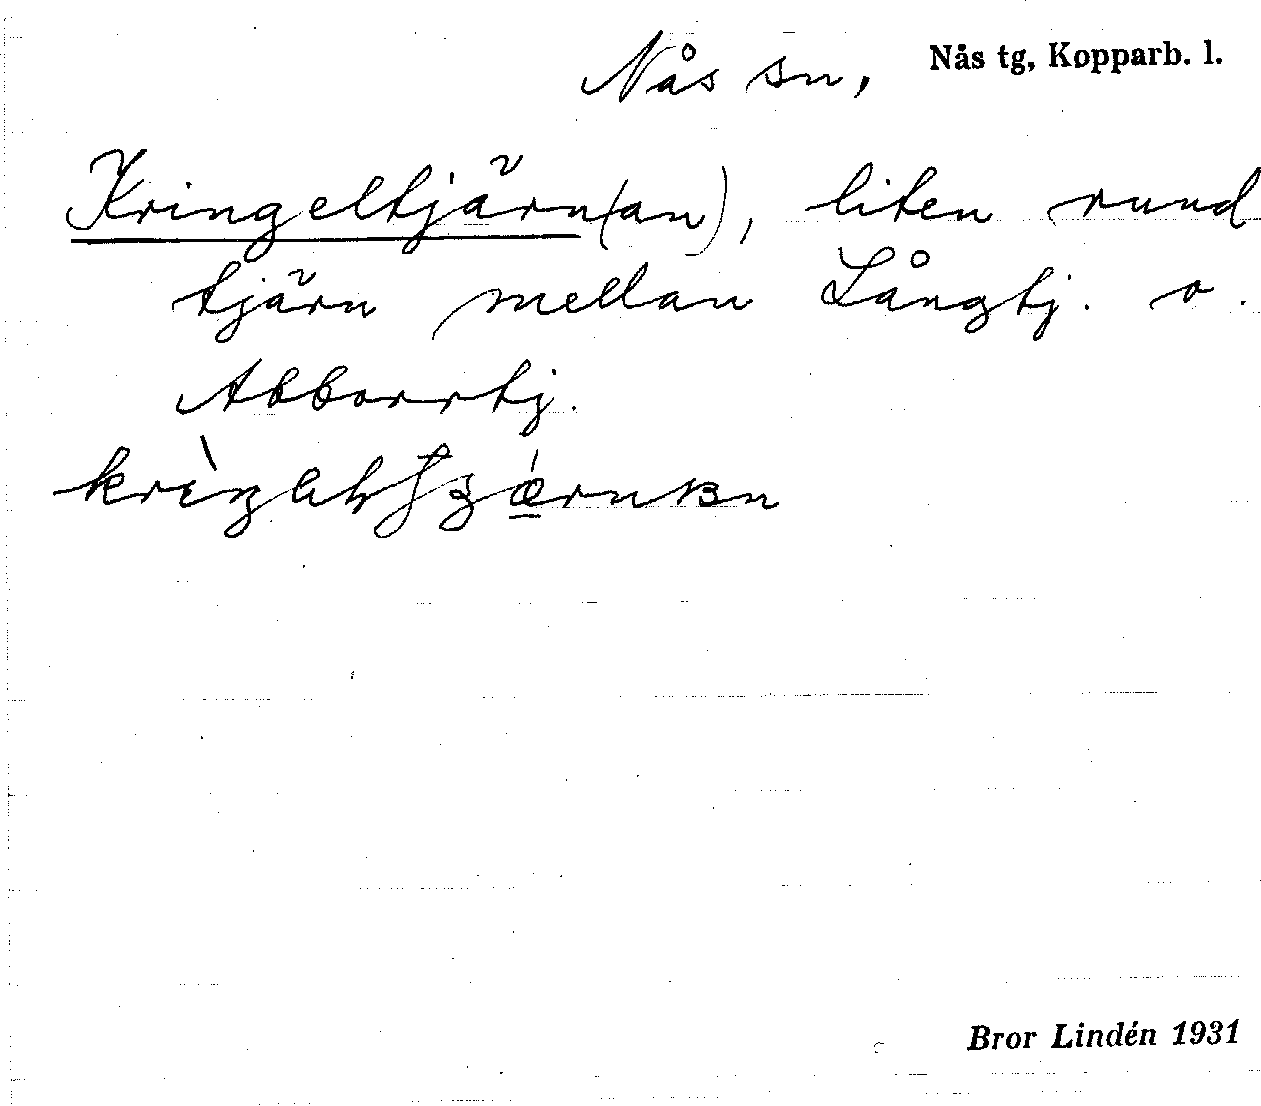 Nås sn, Nås tg, Kopparb. l.
Kringeltjärn(an), liten rund
tjärn mellan Långtj. o.
Abborrtj.
Bror Lindén 1931